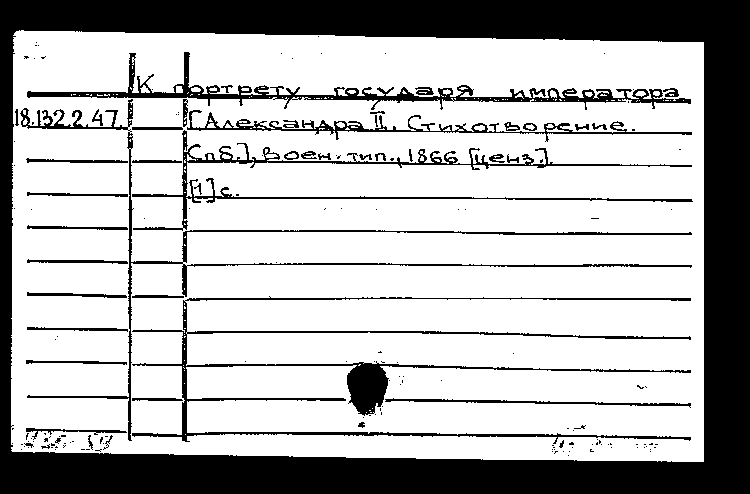 К портрету государя императора
18.132.2.47. [Александра II. Стихотворение.
Спб.], Воен. тип., 1866 [ценз.].
[1] с.